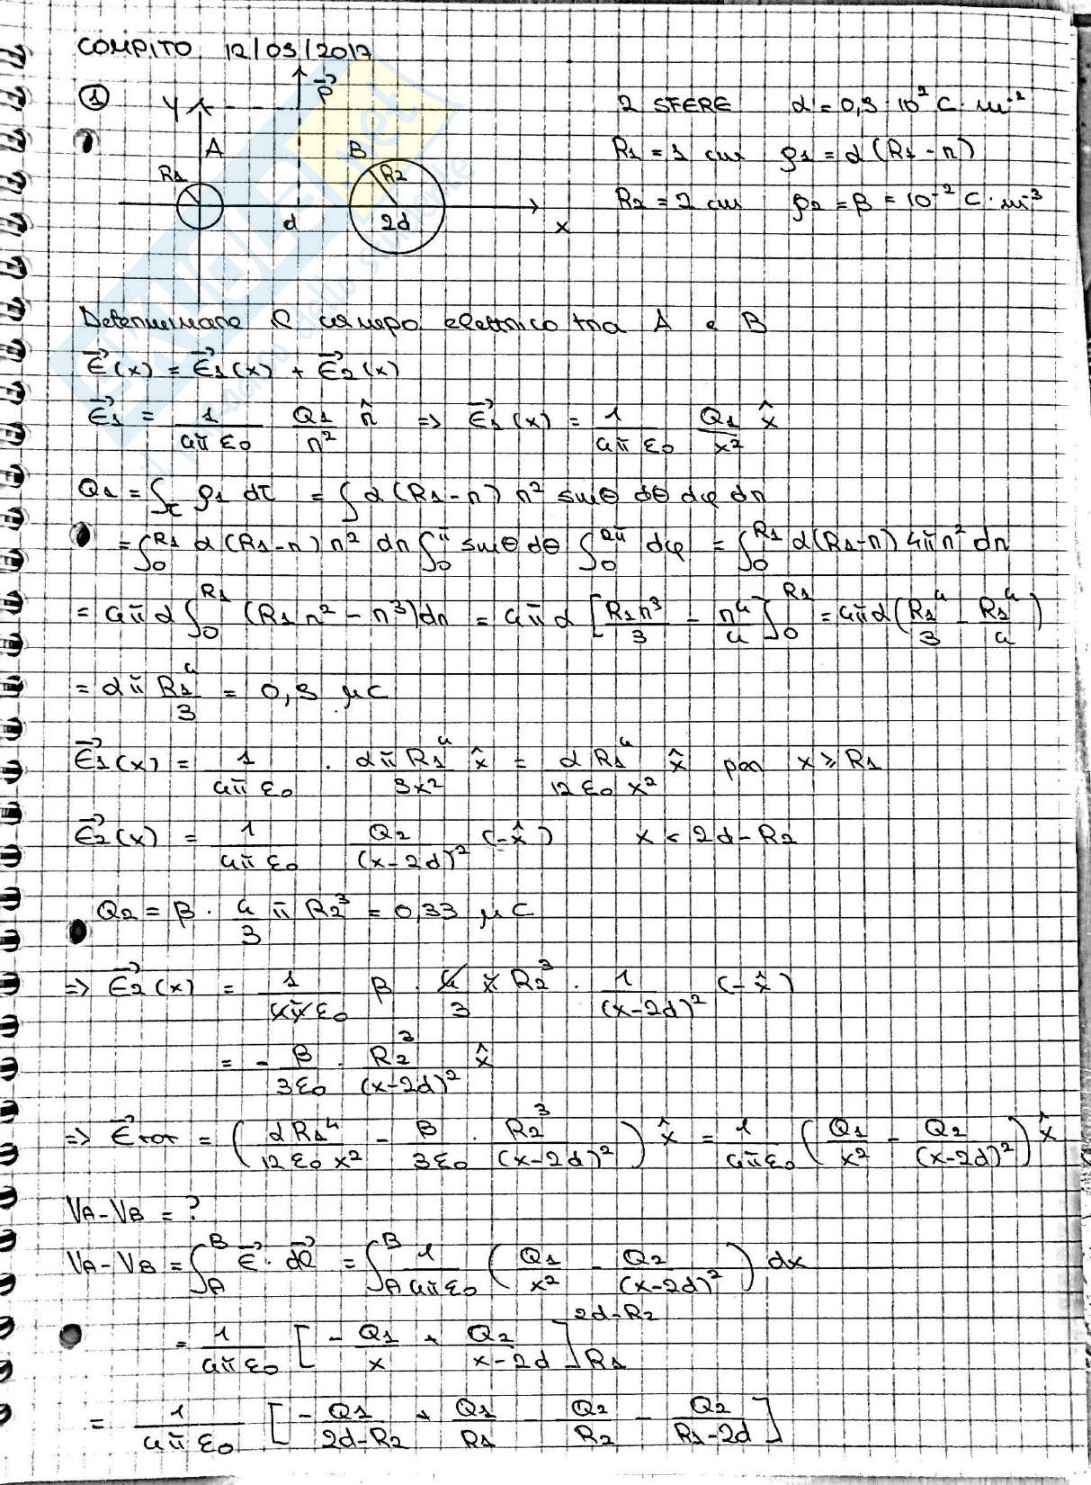 COMPITO 12/09/2017
① Y P⃗ 2 SFERE α = 0,9 10² C · m⁻²
A B R1 = 1 cm ρ1 = α (R1 - r)
R1 R2 R2 = 2 cm ρ2 = β = 10⁻² C · m⁻³
d 2d x
Determinare il campo elettrico tra A e B
E⃗(x) = E⃗1(x) + E⃗2(x)
E⃗1 = 1/(4π ε0) Q1/r² r̂ => E⃗1(x) = 1/(4π ε0) Q1/x² x̂
Q1 = ∫τ ρ1 dτ = ∫ α (R1 - r) r² sinθ dθ dφ dr
= ∫₀^R1 α (R1 - r) r² dr ∫₀^π sinθ dθ ∫₀^2π dφ = ∫₀^R1 α(R1 - r) 4π r² dr
= 4π α ∫₀^R1 (R1 r² - r³) dr = 4π α [R1 r³/3 - r⁴/4]₀^R1 = 4π α (R1⁴/3 - R1⁴/4)
= α π R1⁴/3 = 0,9 μC
E⃗1(x) = 1/(4π ε0) · α π R1⁴/3x² x̂ = α R1⁴/(12 ε0 x²) x̂ per x ≥ R1
E⃗2(x) = 1/(4π ε0) Q2/(x-2d)² (-x̂) x < 2d - R2
Q2 = β · 4/3 π R2³ = 0,33 μC
=> E⃗2(x) = 1/(4π ε0) β · 4/3 π R2³ · 1/(x-2d)² (-x̂)
= - β/(3ε0) · R2³/(x-2d)² x̂
=> E⃗TOT = (α R1⁴/(12 ε0 x²) - β/(3ε0) · R2³/(x-2d)²) x̂ = 1/(4π ε0) (Q1/x² - Q2/(x-2d)²) x̂
VA - VB = ?
VA - VB = ∫_A^B E⃗ · dl⃗ = ∫_A^B 1/(4π ε0) (Q1/x² - Q2/(x-2d)²) dx
= 1/(4π ε0) [- Q1/x + Q2/(x-2d)]_R1^2d-R2
= 1/(4π ε0) [- Q1/(2d-R2) + Q1/R1 - Q2/R2 - Q2/(R1-2d)]